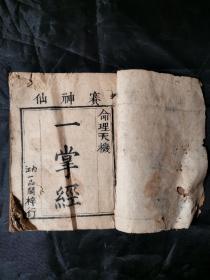 賽神仙
命理天機
一掌經
一品閣梓行